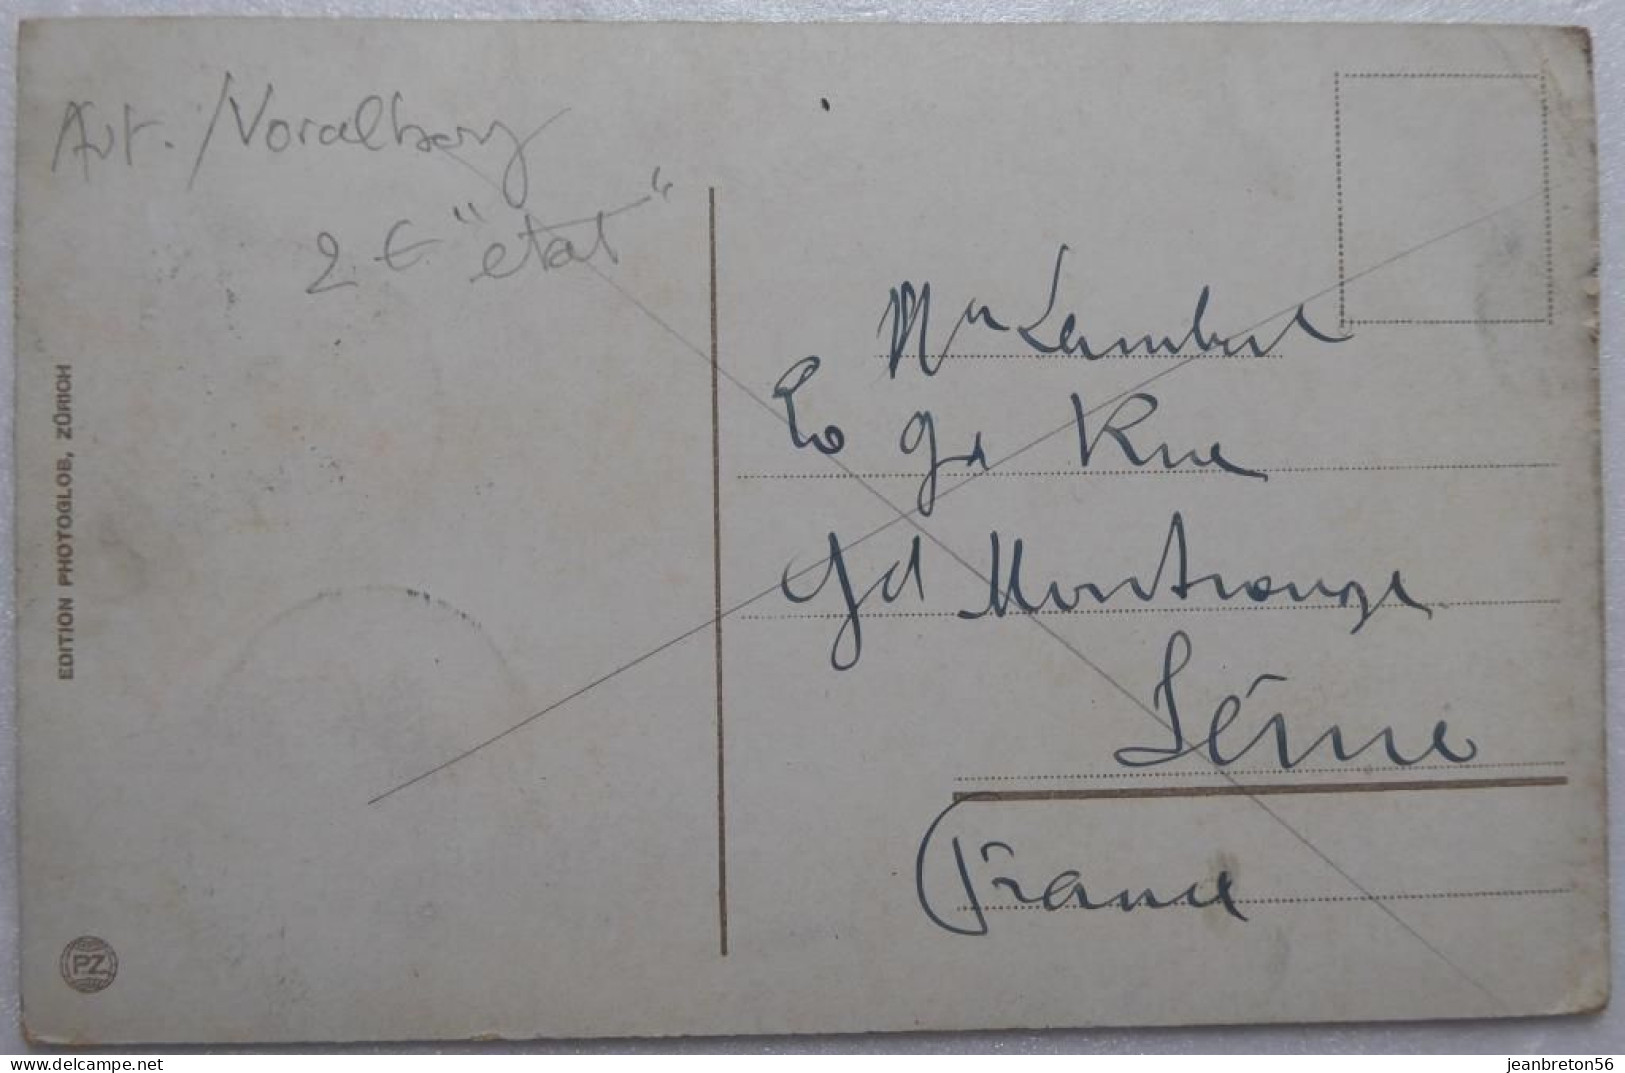 Aut. / Voralberg
2 € "état"
Lambert
Gde Rue
Gd Montrouge
Seine
(France
EDITION PHOTOGLOB, ZÜRICH
PZ
delcampe.net
jeanbreton56